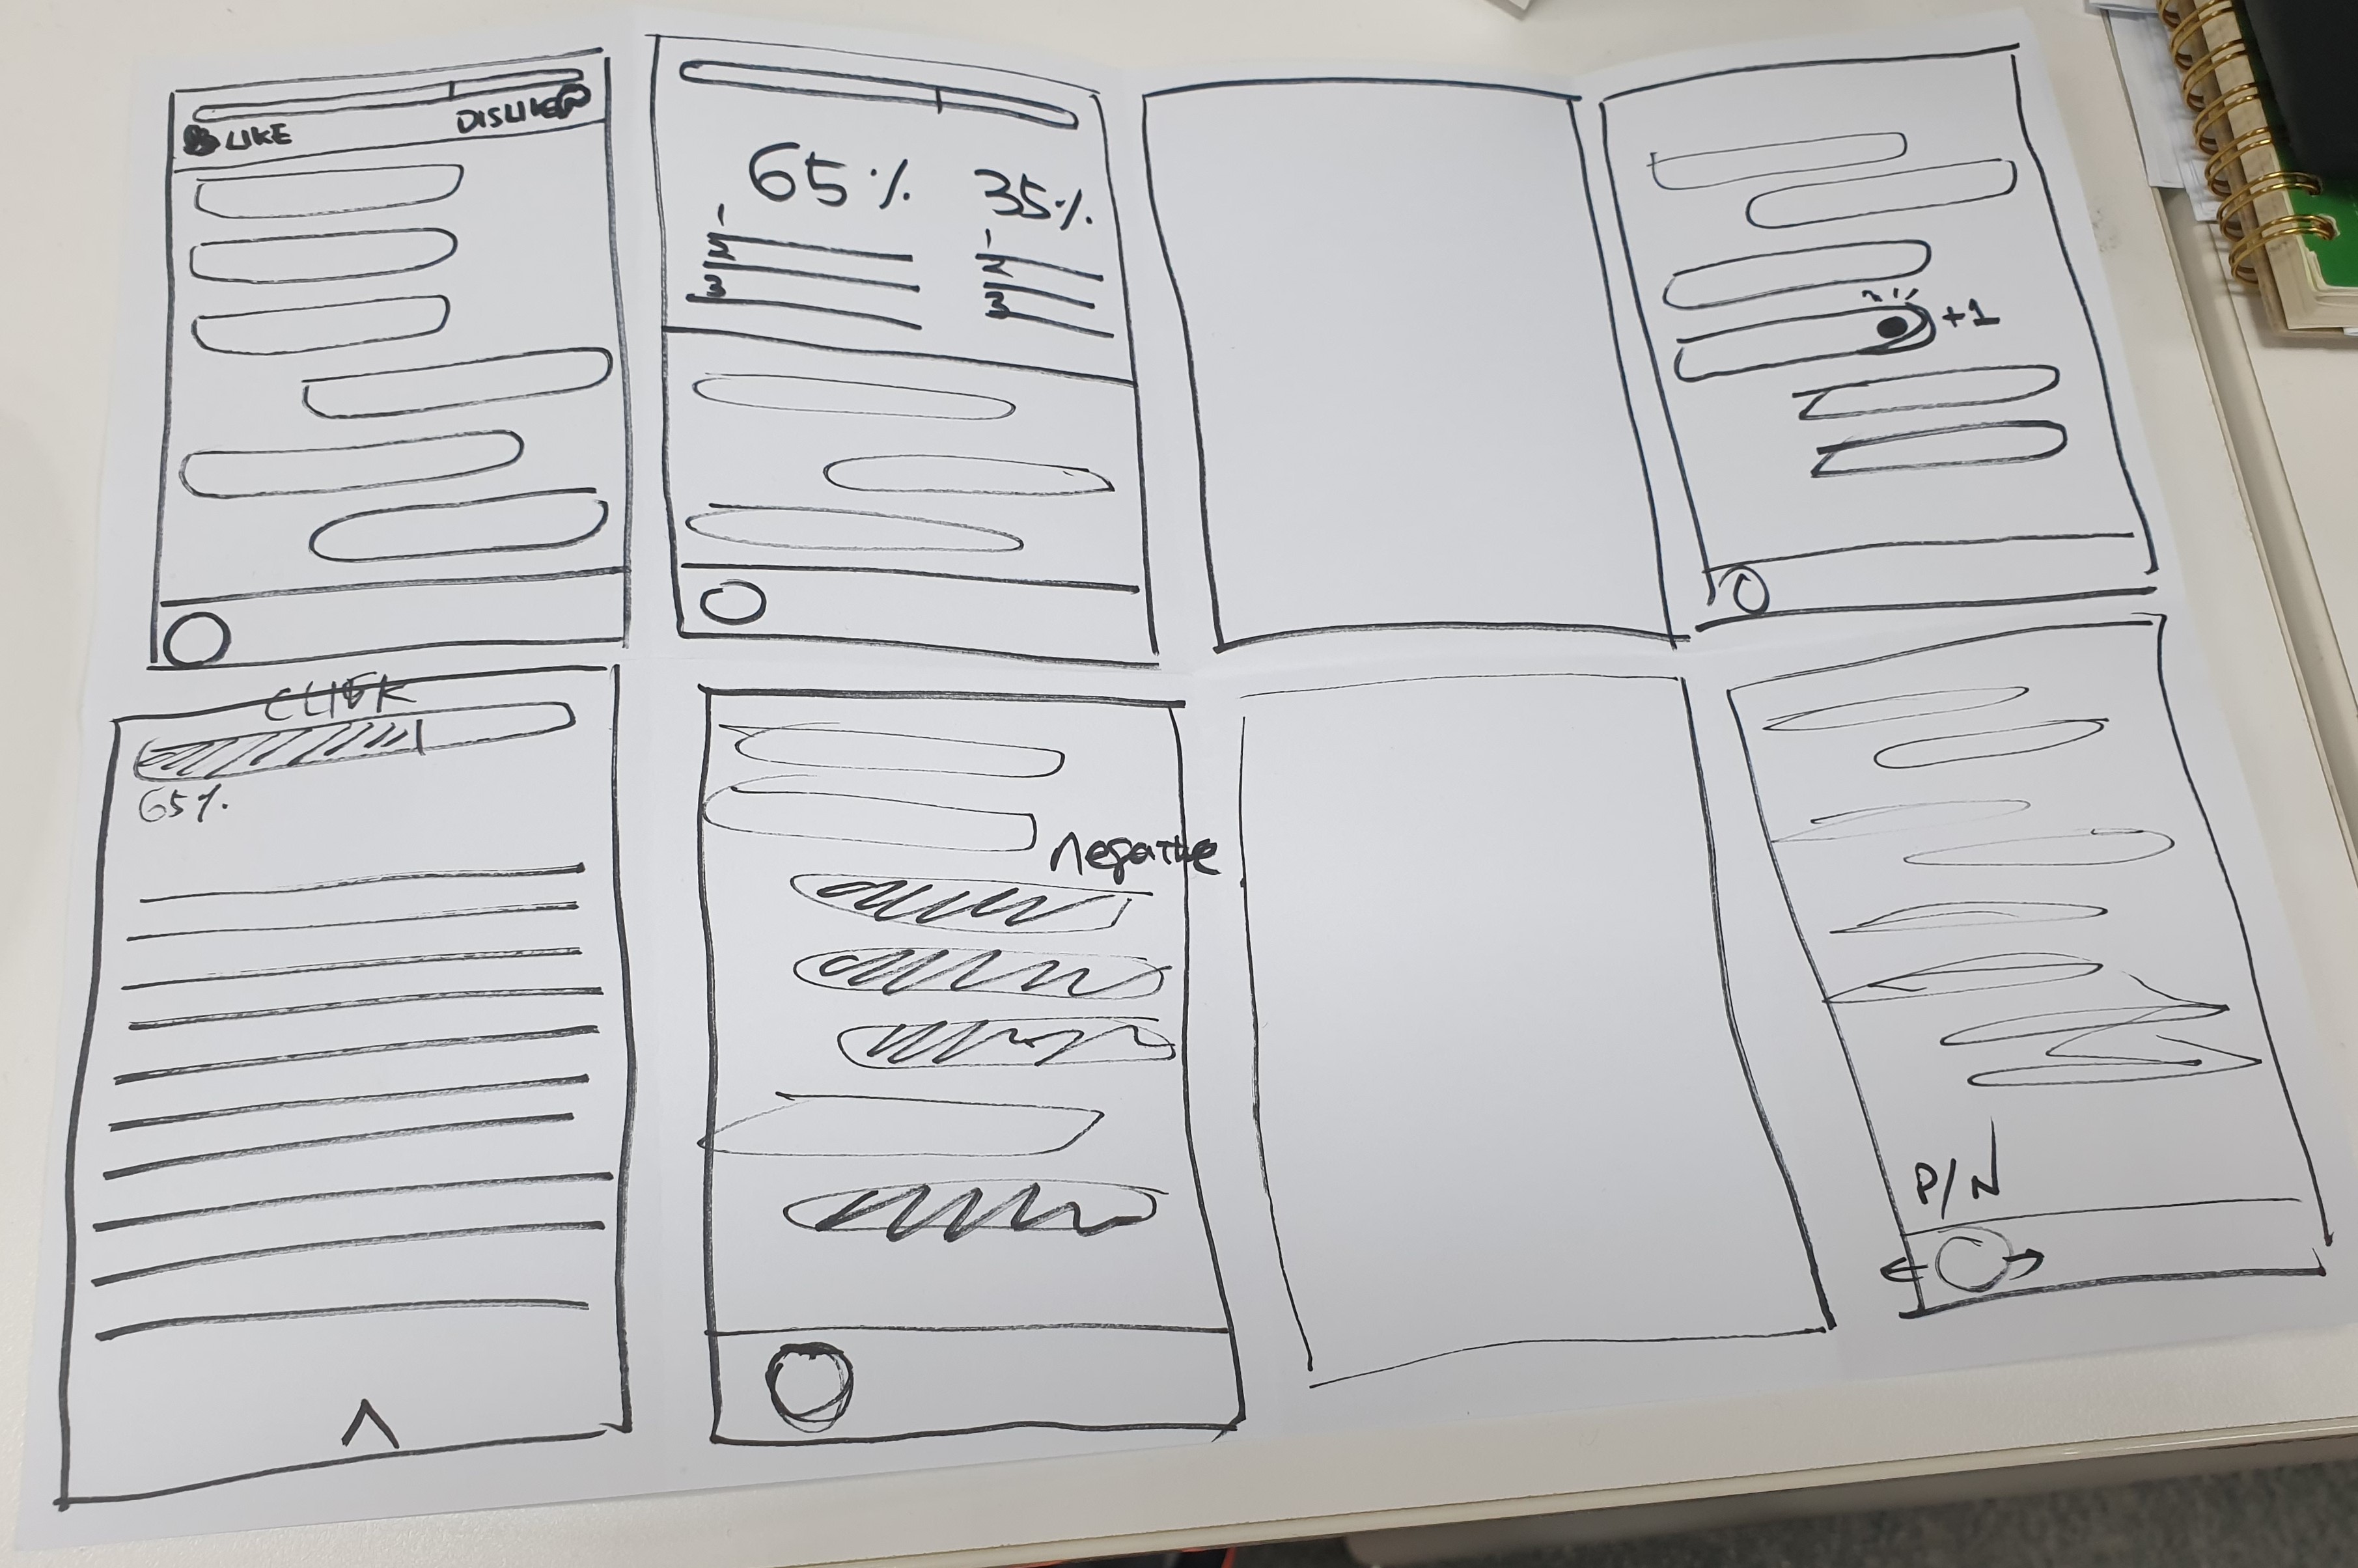 LIKE
DISLIKE
65%
35%
1
2
3
1
2
3
+1
CLICK
65%
negative
P/N